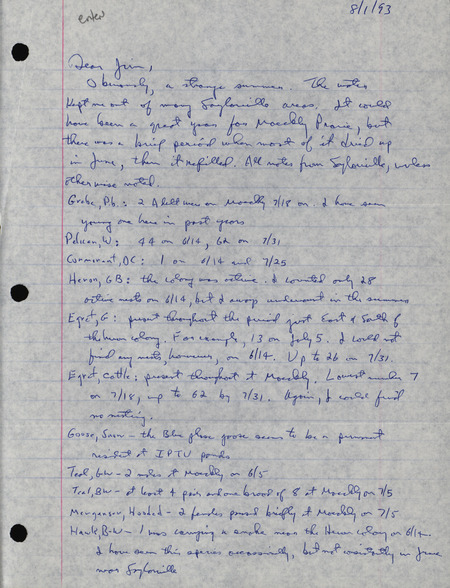 8/1/93
enter
Dear Jim,
Obviously, a strange summer. The water
kept me out of many Saylorville areas. It could
have been a great year for Moeckly Prairie, but
there was a brief period when most of it dried up
in June, then it refilled. All notes from Saylorville, unless
otherwise noted.
Grebe, Pb.: 2 Adults were on Moeckly 7/18 on. I have seen
young one here in past years
Pelican, W: 44 on 6/14, 62 on 7/31
Cormorant, DC: 1 on 6/14 and 7/25
Heron, GB: the colony was active. I counted only 28
active nests on 6/14, but I always undercount in the summer
Egret, G: present throughout the period just East & South of
the heron colony. For example, 13 on July 5. I could not
find any nests, however, on 6/14. Up to 26 on 7/31.
Egret, Cattle: present throughout at Moeckly. Lowest number 7
on 7/18, up to 62 by 7/31. Again, I could find
no nesting.
Goose, Snow - the Blue phase goose seems to be a permanent
resident at IPTV ponds
Teal, GW - 2 males at Moeckly on 6/5
Teal, BW - at least 4 pair and one brood of 8 at Moeckly on 7/5
Merganser, Hooded - 2 females passed briefly at Moeckly on 7/5
Hawk, BW - 1 was carrying a snake near the Heron colony on 6/14.
I have seen this species occasionally, but not consistently in June
near Saylorville